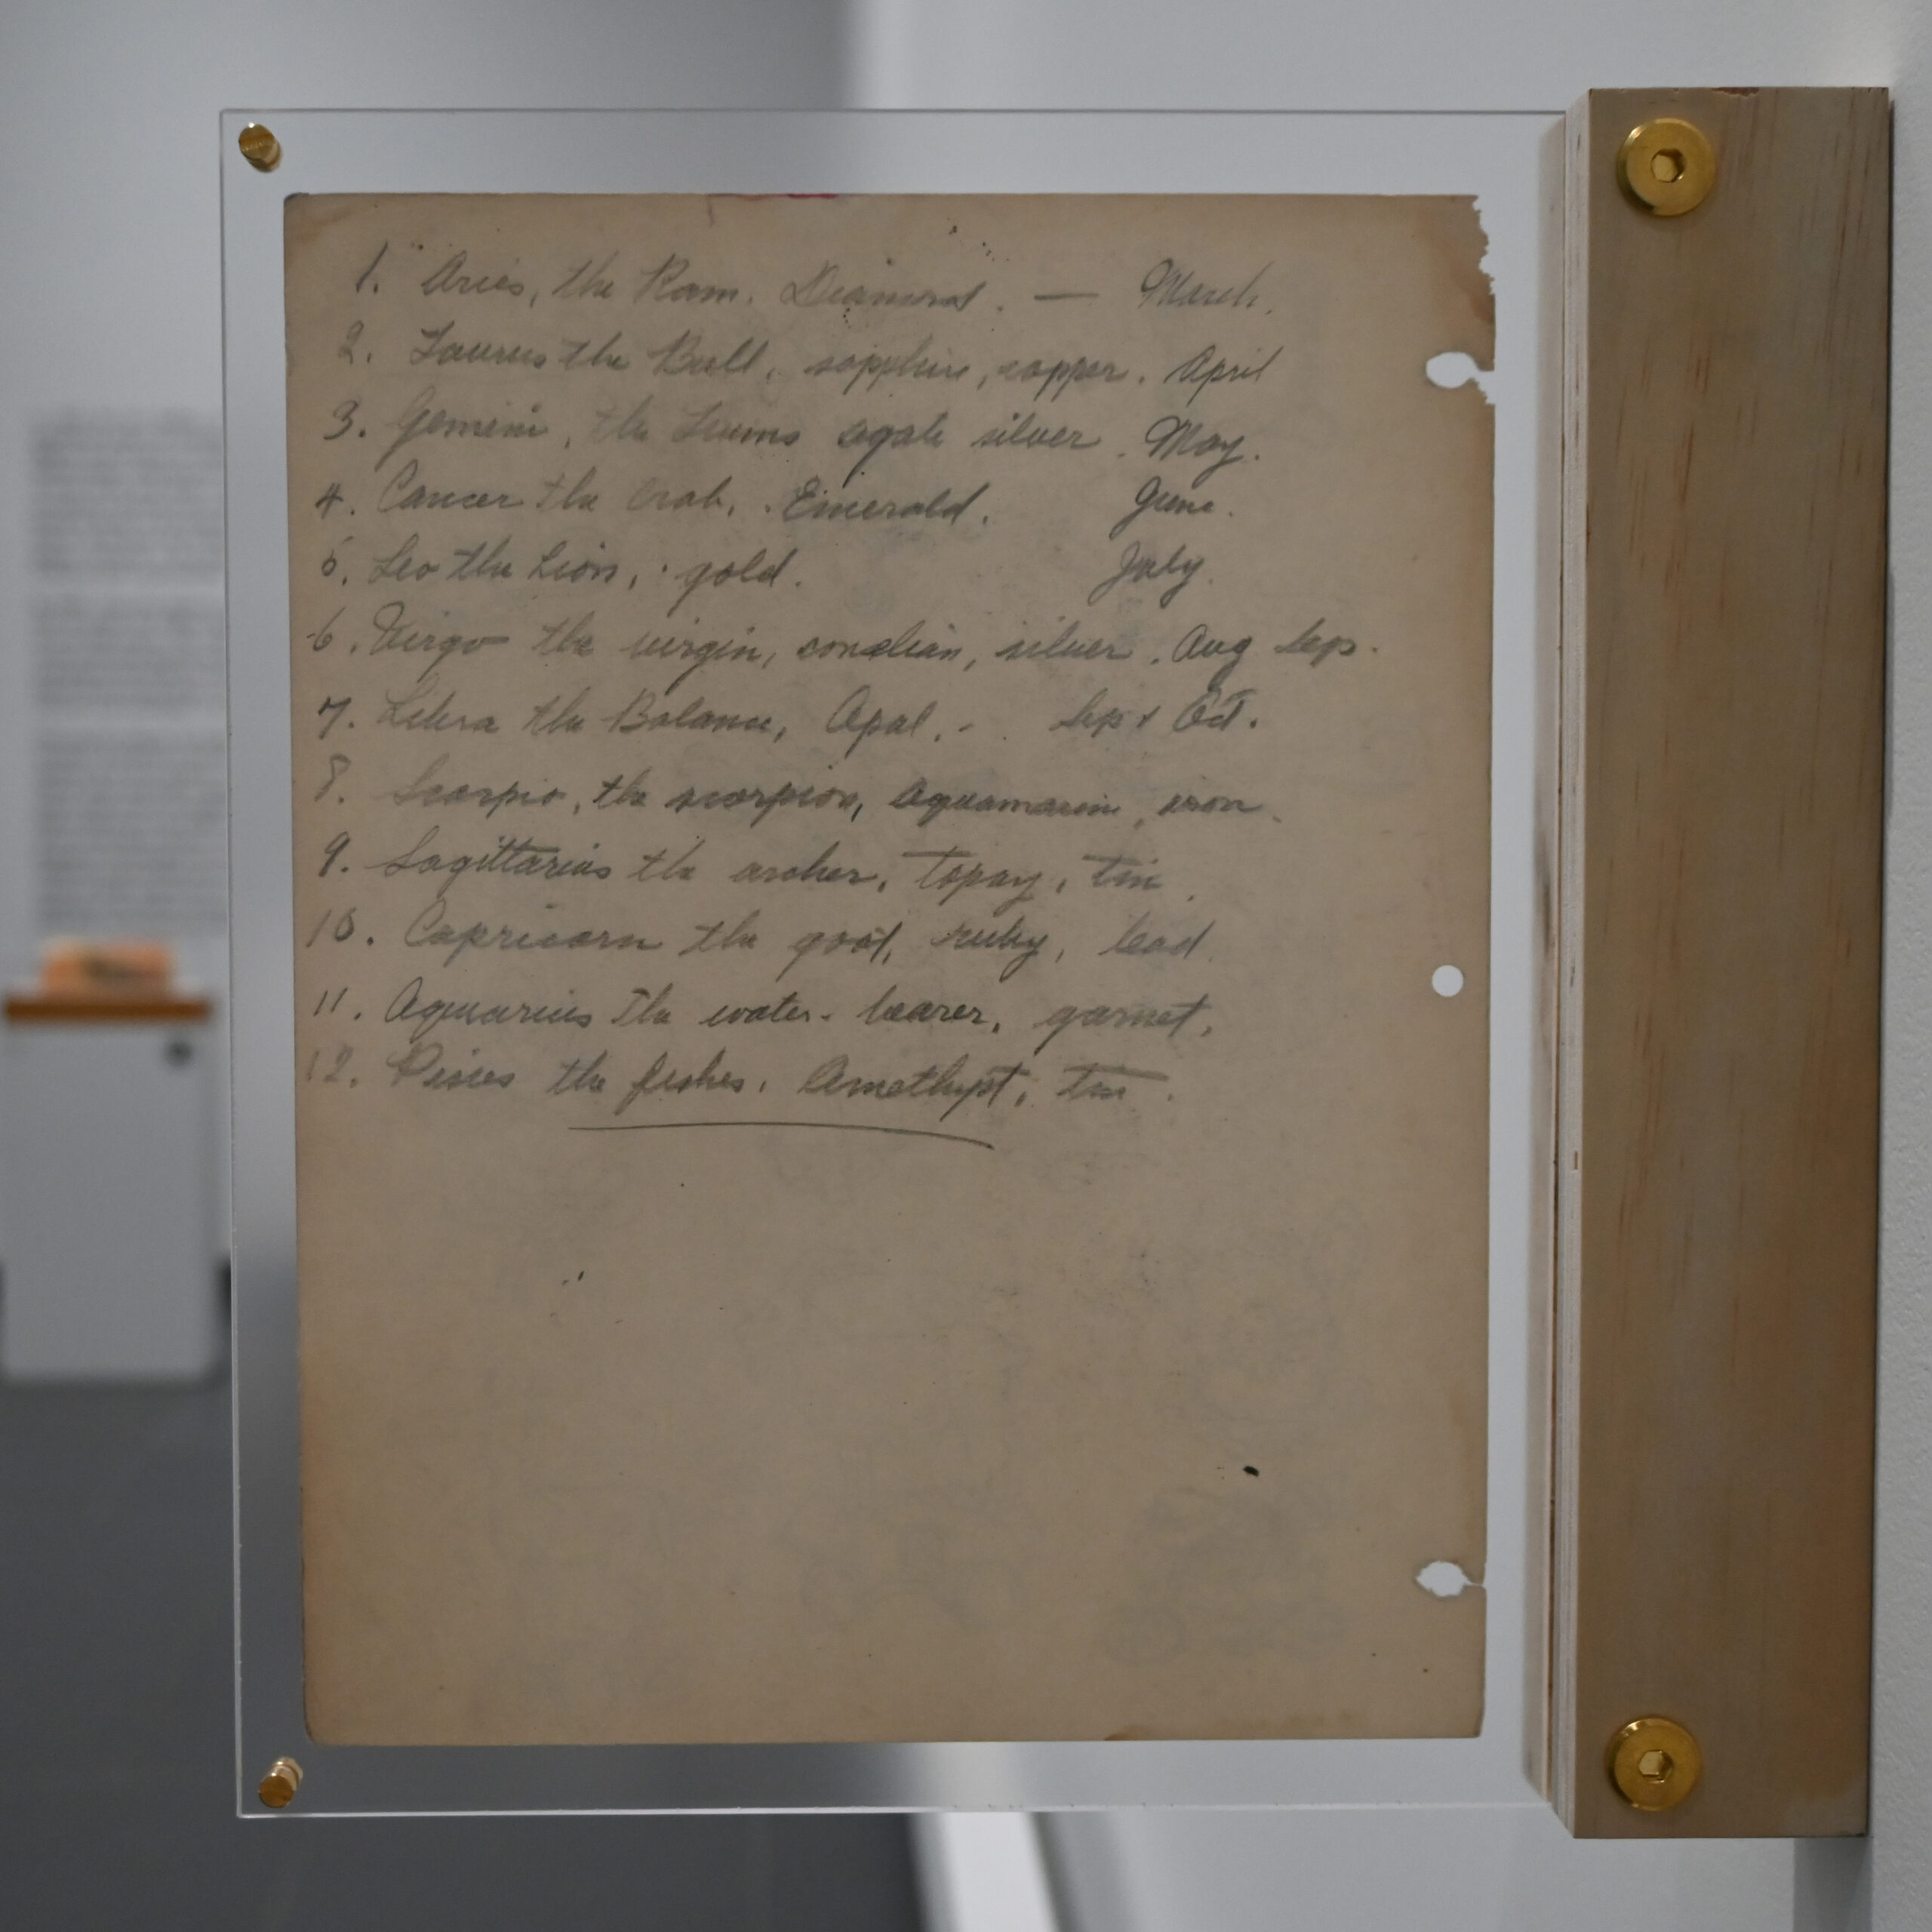 1. Aries, the Ram. Diamond. — March.
2. Taurus the Bull, sapphire, copper. April
3. Gemini, the Twins agate silver. May.
4. Cancer the Crab, . Emerald. June.
5. Leo the Lion, . gold. July.
6. Virgo the virgin, silver. Aug Sep.
7. Libra the Balance, Opal. - . Sep & Oct.
8. Scorpio, the scorpion, Aquamarine, iron.
9. Sagittarius the archer, Topaz, Tin.
10. Capricorn the goat, ruby, lead.
11. Aquarius The water-bearer, garnet,
12. Pisces the fishes. Amethyst, Tin.